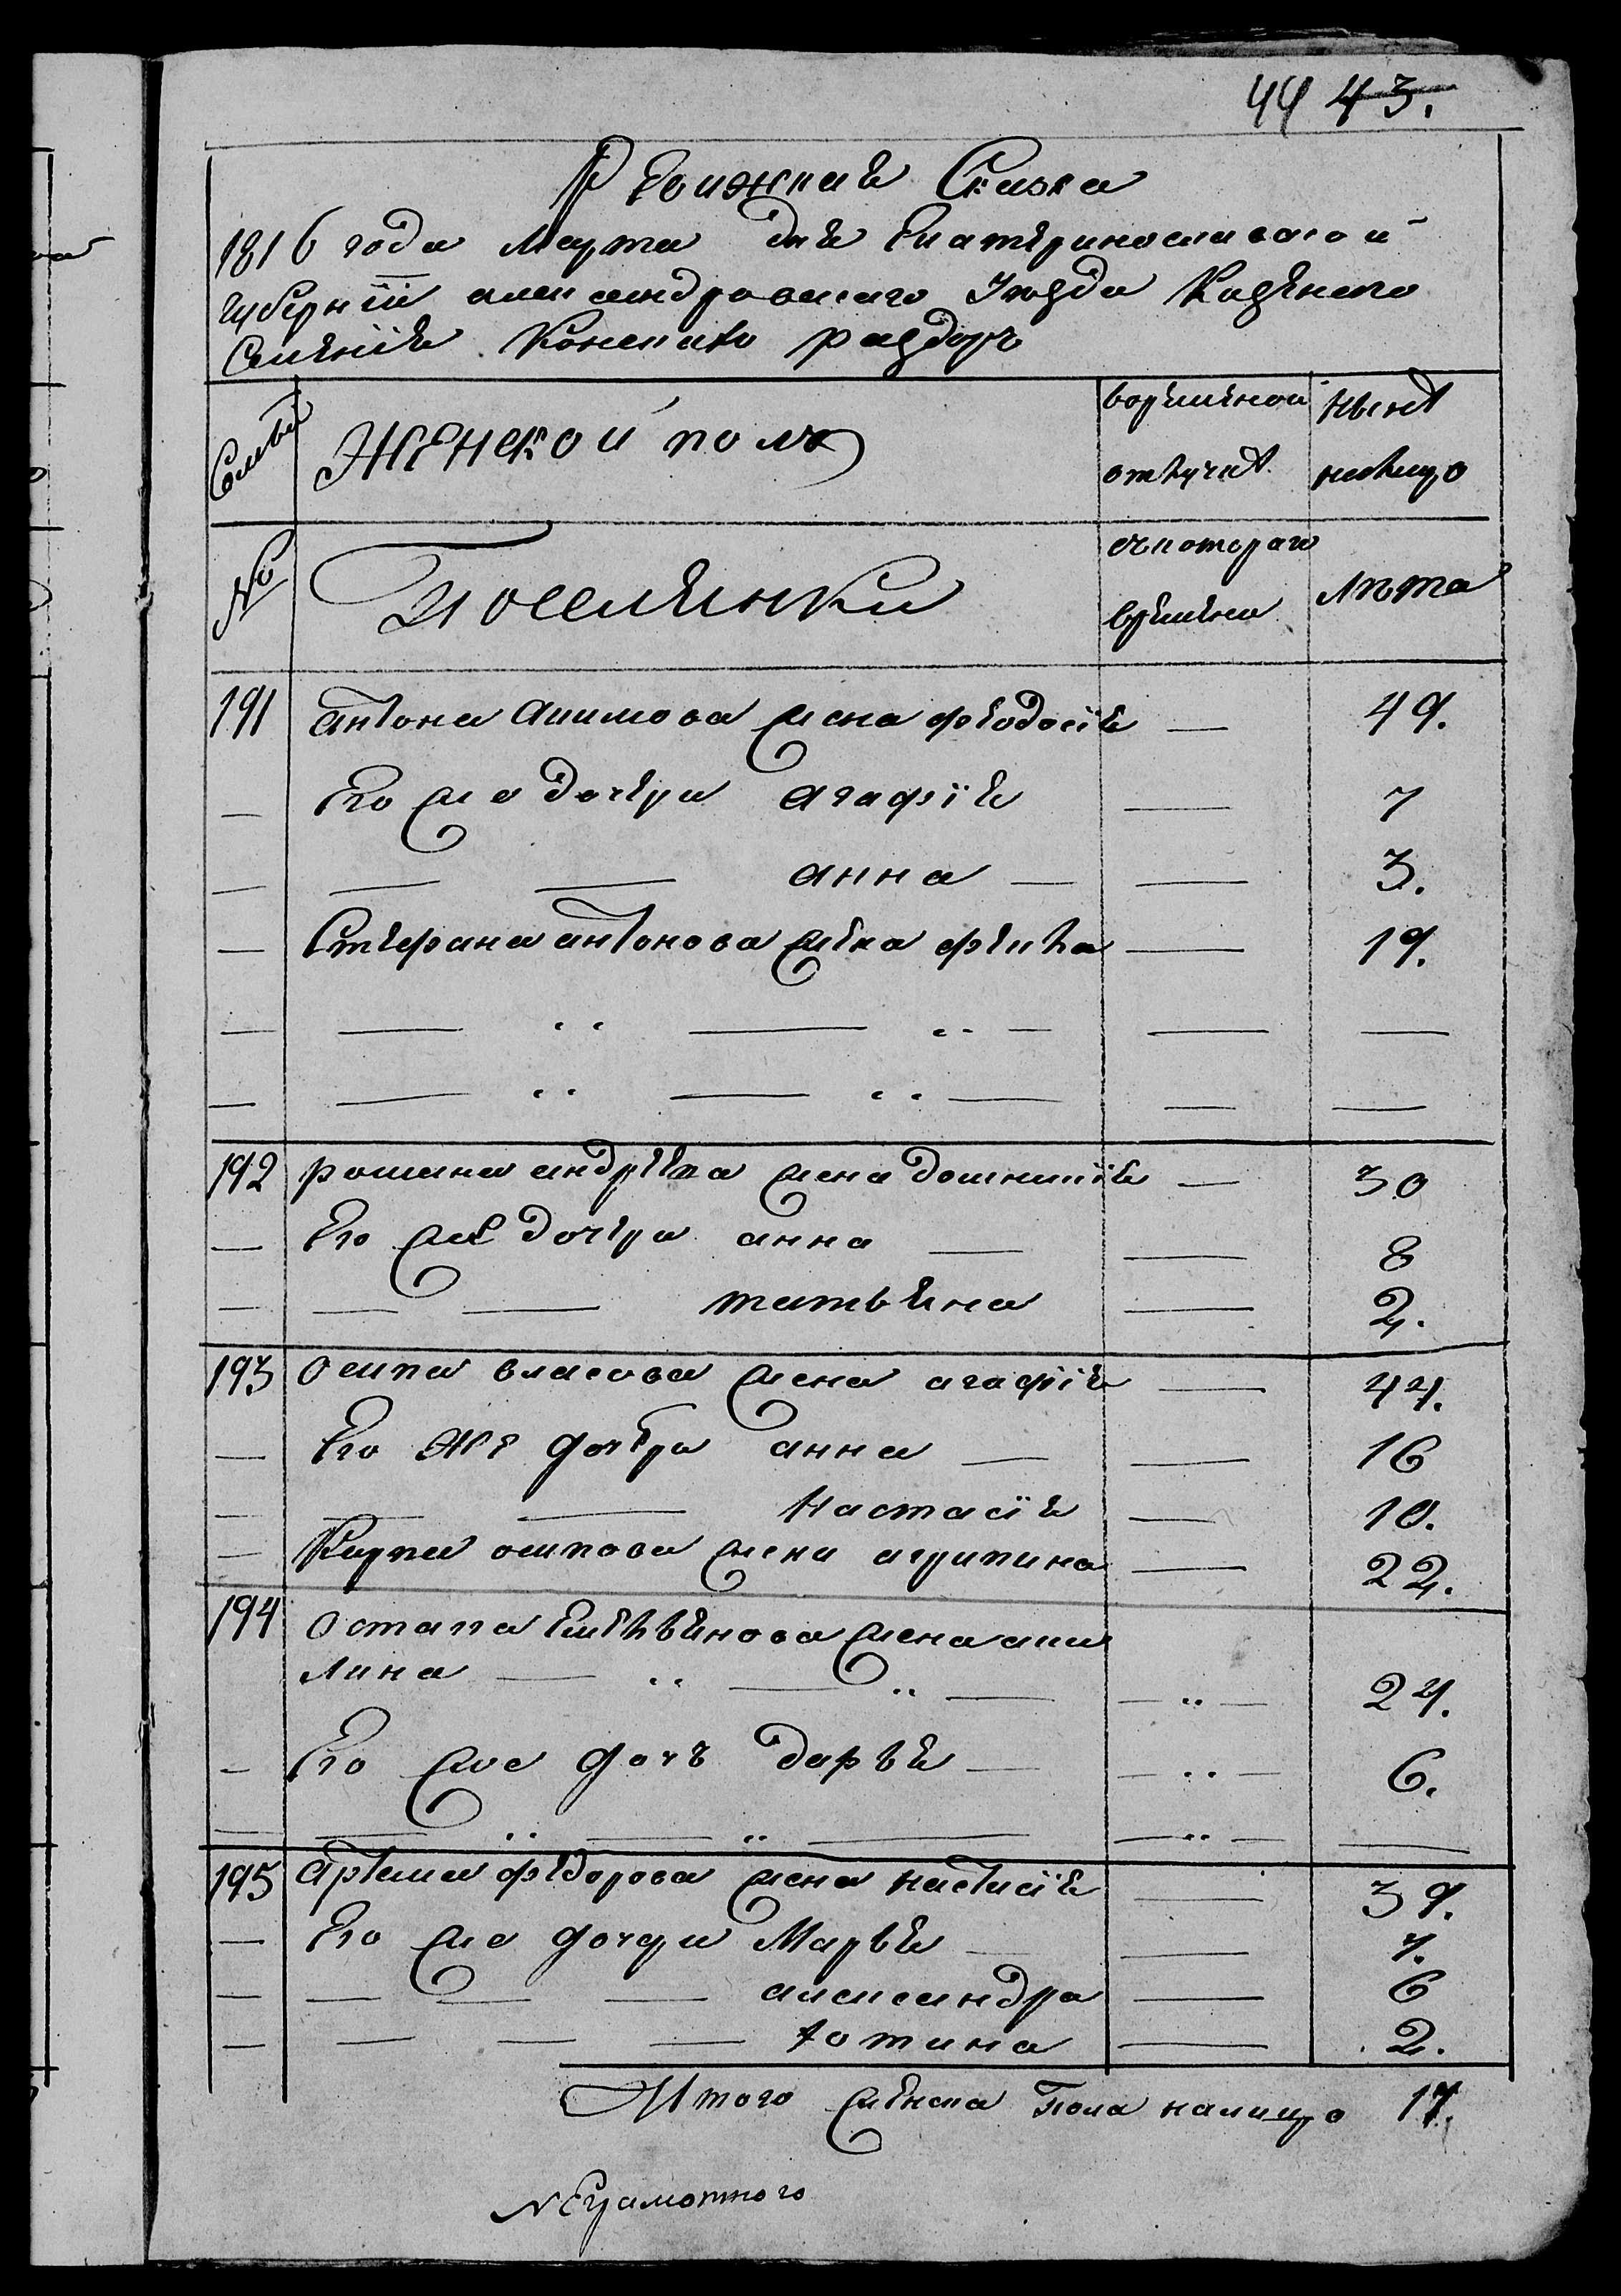 44 43.
Ревижская Сказка
1816 года Марта дня Екатеринославской
губернїи александровскаго Уезда Казенного
Селенїя Конских раздор
Семьи
Женской пол
во временной
отлучке
ныне
налицо
№
Поселянки
с которого
времени
Лета
191 антона Акимова жена феодосїя — 49.
— Его же дочери агафїя — 7
— — — анна — — 3.
— Стефана антонова жена фекла — 19.
192 романа андреева жена домникїя — 30
— Его же дочери анна — — 8
— — — татьяна — 2.
193 осипа власова жена агафїя — 44.
— Его же дочери анна — — 16
— — — Настасїя — 10.
— Карпа осипова жена агрипина — 22.
194 остапа Емельянова жена аки
лина — „ — „ — — „ — 24.
— Его же дочь дарья — — „ — 6.
— — „ — „ — — „ — —
195 Артема федорова жена настасїя — 39.
— Его же дочери Марья — — 7.
— — — — александра — 6
— — — — фотина — 2.
Итого женска пола налицо 17.
неграмотного